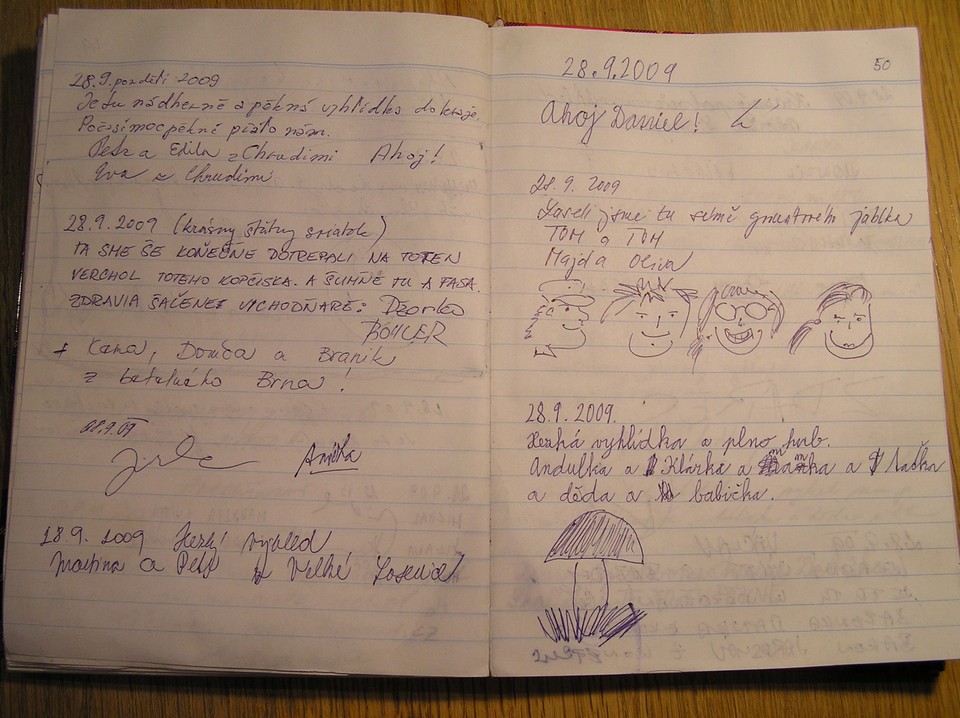 28.9. pondělí 2009
Je tu nádherně a pěkná vyhlídka do kraje.
Počasí moc pěkné přálo nám.
Petr a Edita z Chrudimi Ahoj!
Eva z Chrudimi
28.9.2009 (krásny štátny sviatok)
TA SME ŠE KOŇEČNE DOTREPALI NA TOTEN
VERCHOL TOTEHO KOPČISKA. A ŠUMNE TU A TASA
ZDRAVIA ŠAČENEJ VICHODŇARE: Džonko
BÖHLER
+ Kama, Domča a Braník
z bukového Brna!
28.9.09
Anička
28.9. 2009 Hezký výhled
Martina a Petr z Velké Losenice
50
28.9.2009
Ahoj Daniel!
28.9. 2009
Snědli jsme tu
jablka
TOM a TOM
Majda Oliva
28.9.2009.
Hezká vyhlídka a plno hub.
Andulka a Klárka a mamka a Taťka
a děda a babička.